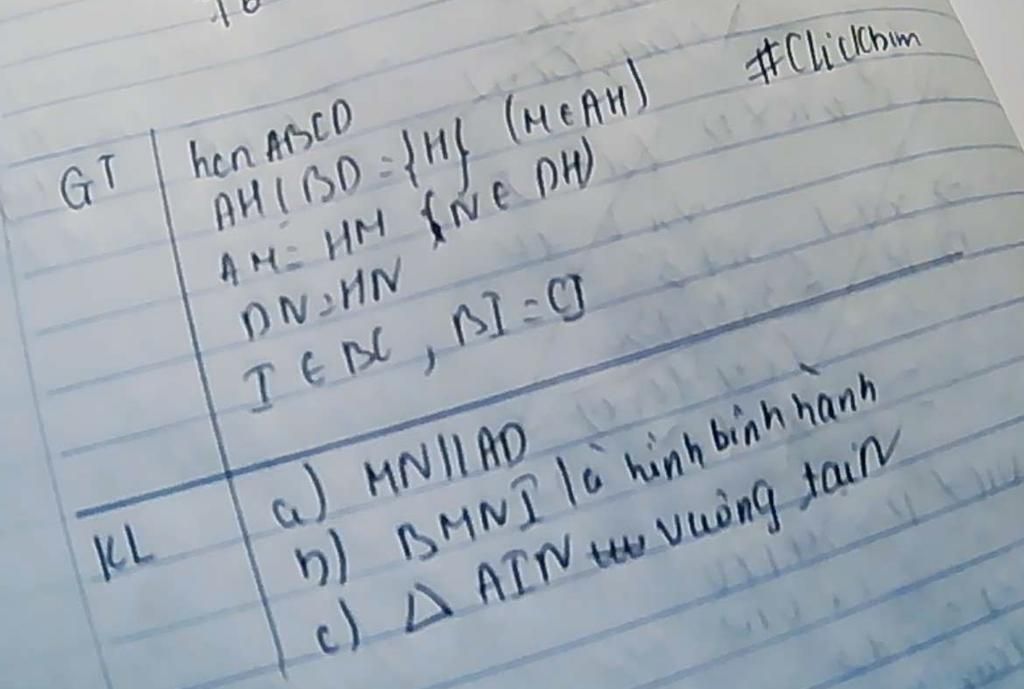 #Clickbim
GT
hcn ABCD
AH ⊥ BD = {H} (M ∈ AH)
AM = HM (N ∈ DH)
DN = HN
I ∈ BC, BI = CI
KL
a) MN // AD
b) BMNI là hình bình hành
c) Δ AIN vuông tại N